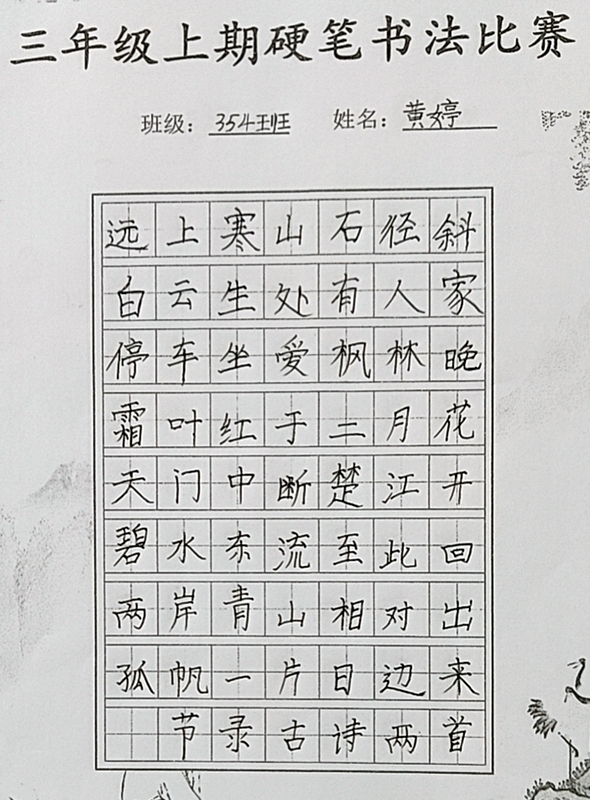 三年级上期硬笔书法比赛
班级：354班 姓名：黄婷
远上寒山石径斜
白云生处有人家
停车坐爱枫林晚
霜叶红于二月花
天门中断楚江开
碧水东流至此回
两岸青山相对出
孤帆一片日边来
节录古诗两首